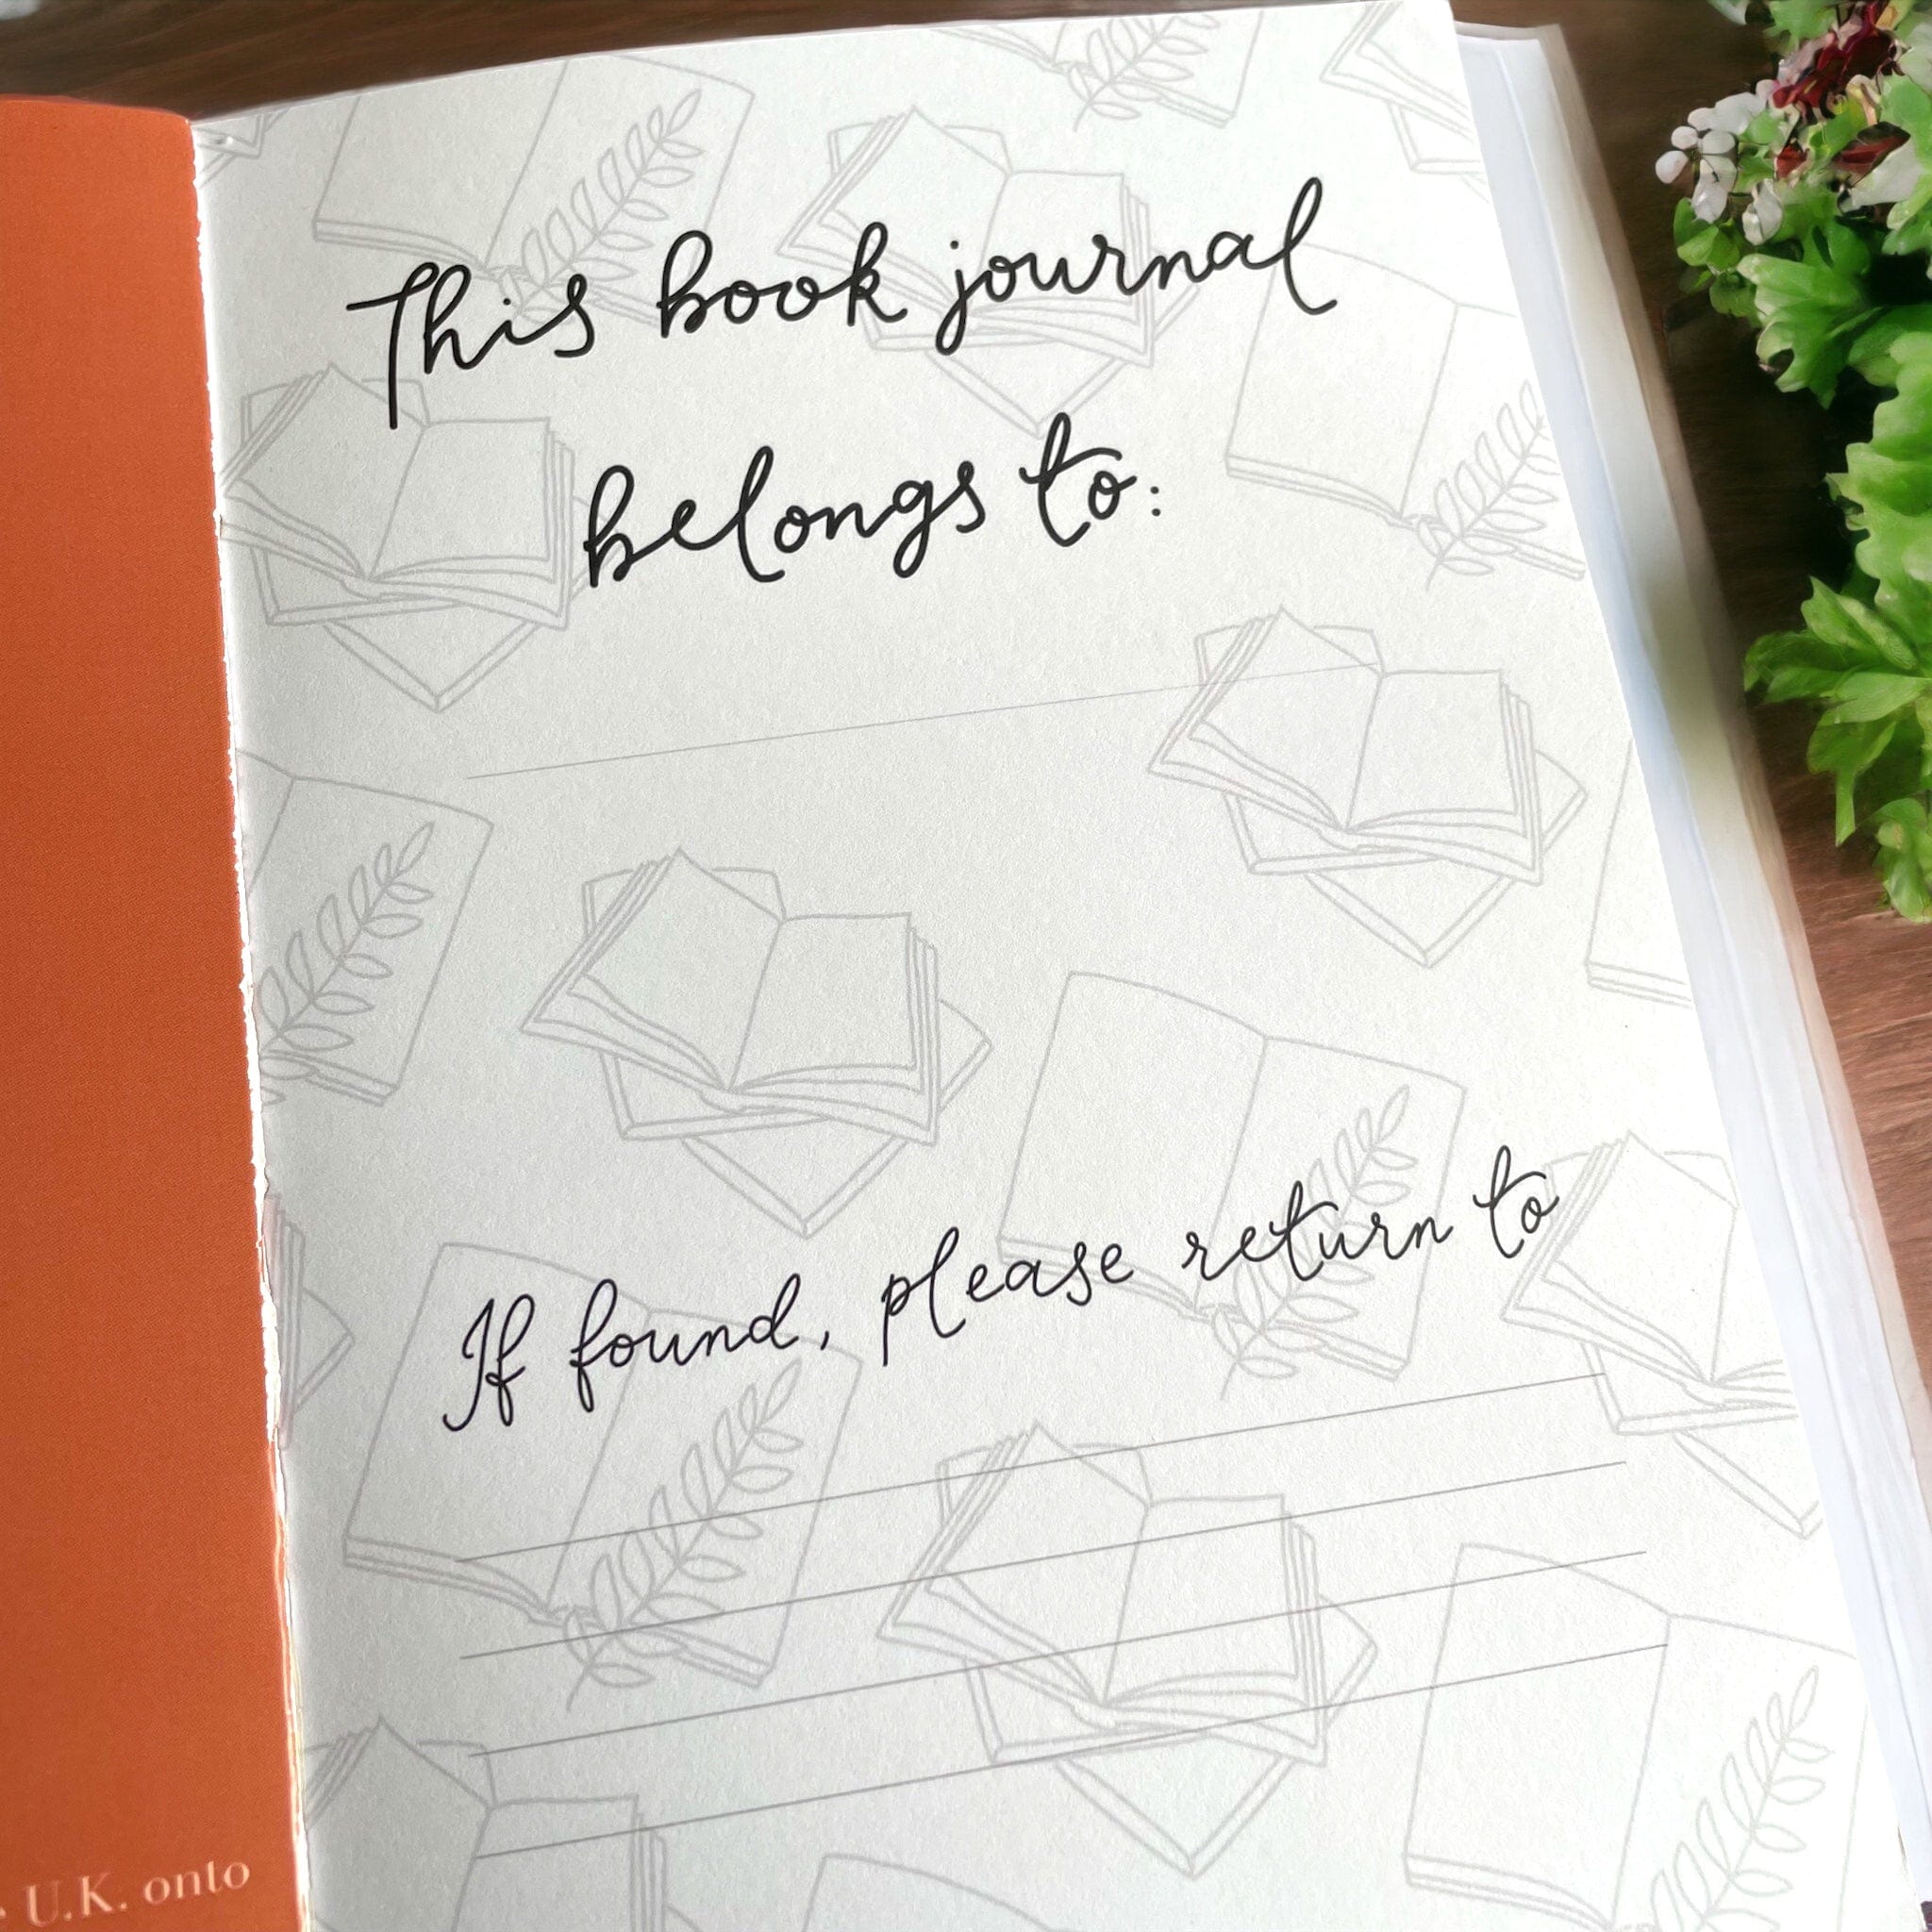 This book journal
belongs to:
If found, please return to
U.K. onto